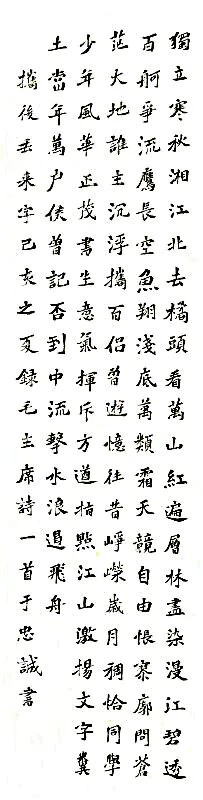 獨立寒秋湘江北去橘頭看萬山紅遍層林盡染漫江碧透
百舸爭流鷹長空魚翔淺底萬類霜天競自由悵寥廓問蒼
茫大地誰主沉浮攜百侶曾遊憶往昔崢嶸歲月稠恰同學
少年風華正茂書生意氣揮斥方遒指點江山激揚文字糞
土當年萬戶侯曾記否到中流擊水浪遏飛舟
攜後丟來字己亥之夏錄毛主席詩一首于忠誠書